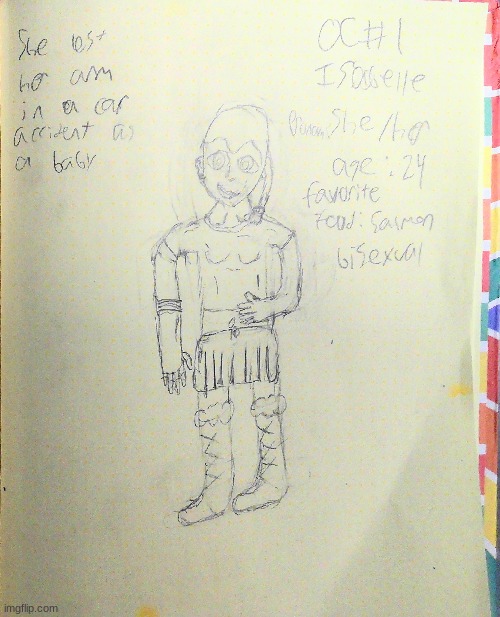 She lost
her arm
in a car
accident as
a baby
OC#1
Isabelle
She/her
age: 24
favorite
food: Salmon
bisexual
imgflip.com